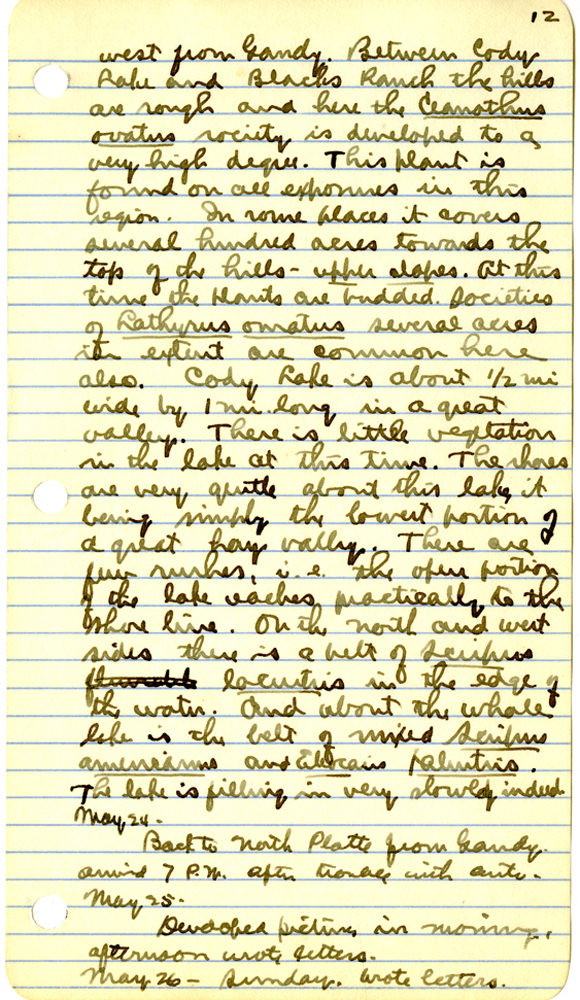 12
west from Gandy. Between Cody
Lake and Blacks Ranch the hills
are rough and here the Ceanothus
ovatus society is developed to a
very high degree. This plant is
found on all exposures in this
region. In some places it covers
several hundred acres towards the
top of the hills - upper slopes. At this
time the plants are budded. Societies
of Lathyrus ornatus several acres
in extent are common here
also. Cody Lake is about 1/2 mi
wide by 1 mi. long in a great
valley. There is little vegetation
in the lake at this time. The shores
are very gentle about this lake, it
being simply the lowest portion of
a great hay valley. There are
few rushes, i.e. the open portion
of the lake reaches practically to the
shore line. On the north and west
sides there is a belt of Scirpus
lacustris in the edge of
the water. And about the whole
lake is the belt of mixed Scirpus
americanus and Eleocaris palustris.
The lake is filling in very slowly indeed.
May 24.
Back to North Platte from Gandy.
arrived 7 P.M. after with auto.
May 25.
Developed pictures in morning,
afternoon wrote letters.
May 26 - Sunday. Wrote letters.